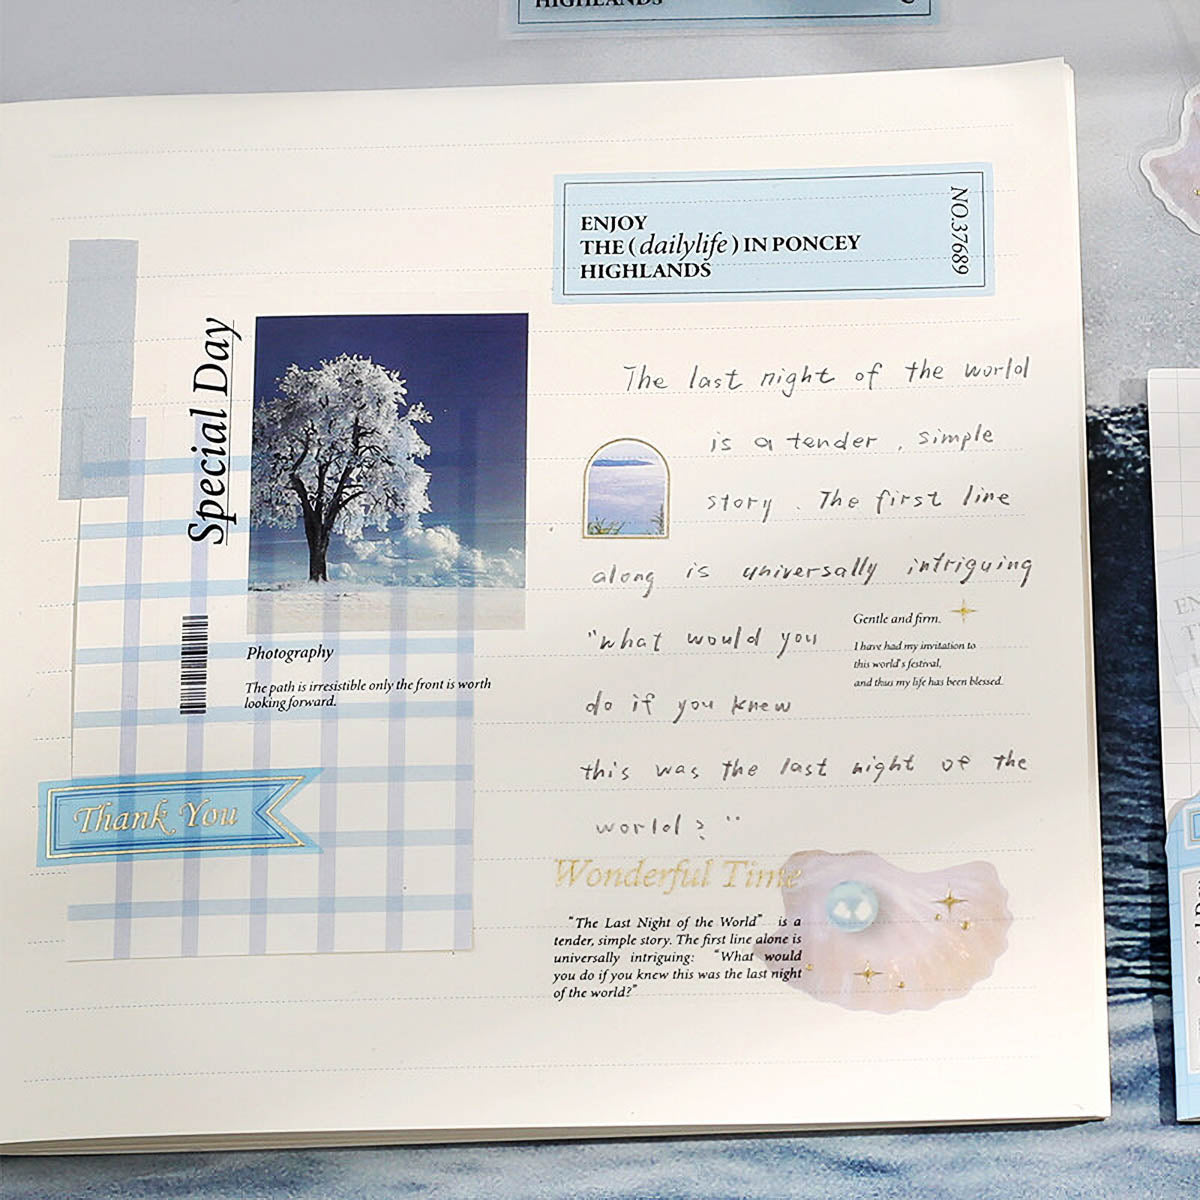 HIGHLANDS
ENJOY
THE (dailylife) IN PONCEY
HIGHLANDS
NO.37689
Special Day
Photography
The path is irresistible only the front is worth
looking forward.
Thank You
The last night of the world
is a tender, simple
story. The first line
along is universally intriguing
"what would you
do if you knew
this was the last night of the
world? "
Gentle and firm.
I have had my invitation to
this world's festival,
and thus my life has been blessed.
Wonderful Time
"The Last Night of the World" is a
tender, simple story. The first line alone is
universally intriguing: "What would
you do if you knew this was the last night
of the world?"